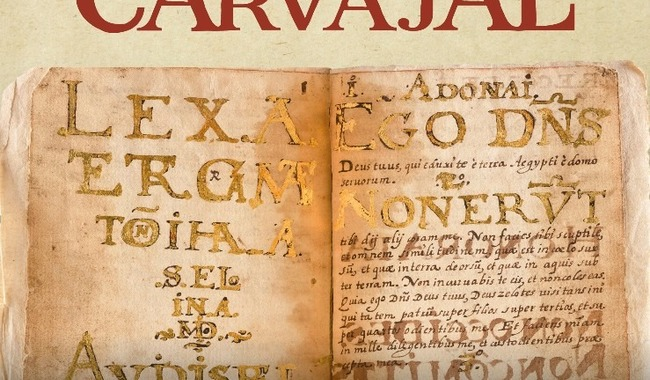 CARVAJAL
LEX.A
.ERGM
TOÑIH.A
.S.EL
IN.A
.MO.
AVDISEL
.I. ADONAI
EGO DÑS
Deus tuus, qui eduxi te è terra Aegypti è domo
servorum.
.2o.
NONERVT
tibi dij alij coram me. Non facies tibi sculptile,
et omnem similitudinem, quae est in coelo sur
sũ, et quae in terra deorsũ, et quae in aquis sub
ter terram. Non incurvabis te eis, et non coles eas.
Quia ego Dñs Deus tuus, Deus zelotes visitans ini
qui ta tem patrũ super filios super tertios, et su
per quartos odientibus me. Et faciens
in mille diligentibus me, et custodientibus prae
cepta mea.